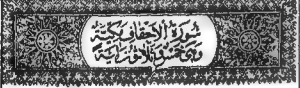 سورة الأحقاف مكية
وهي خمس وثلاثون آية